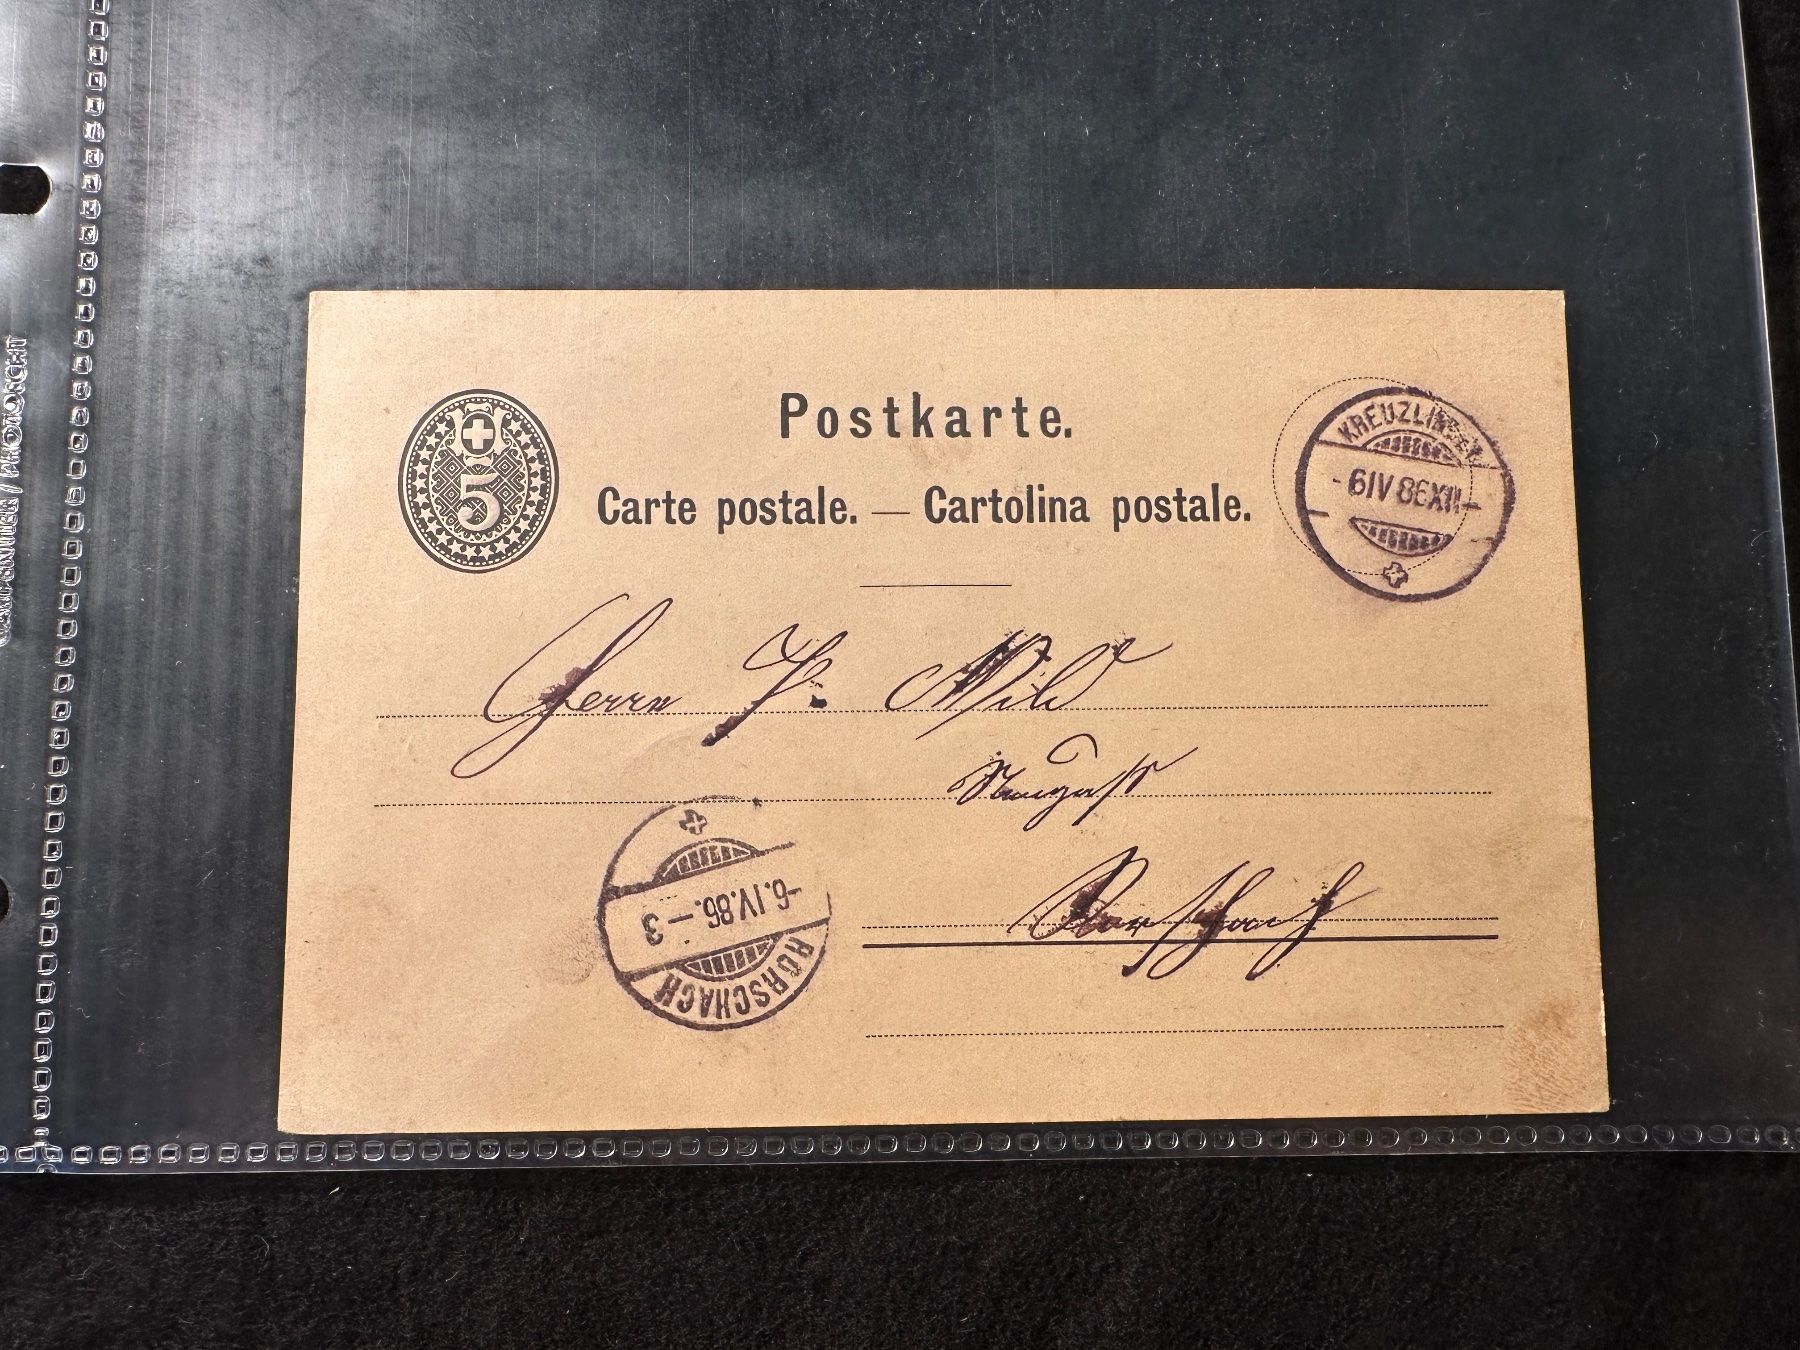 5
Postkarte.
Carte postale. — Cartolina postale.
KREUZLINGEN
-6IV 86XII-
Herrn J. Wild
Rorschach
-6.IV.86.-3
RORSCHACH